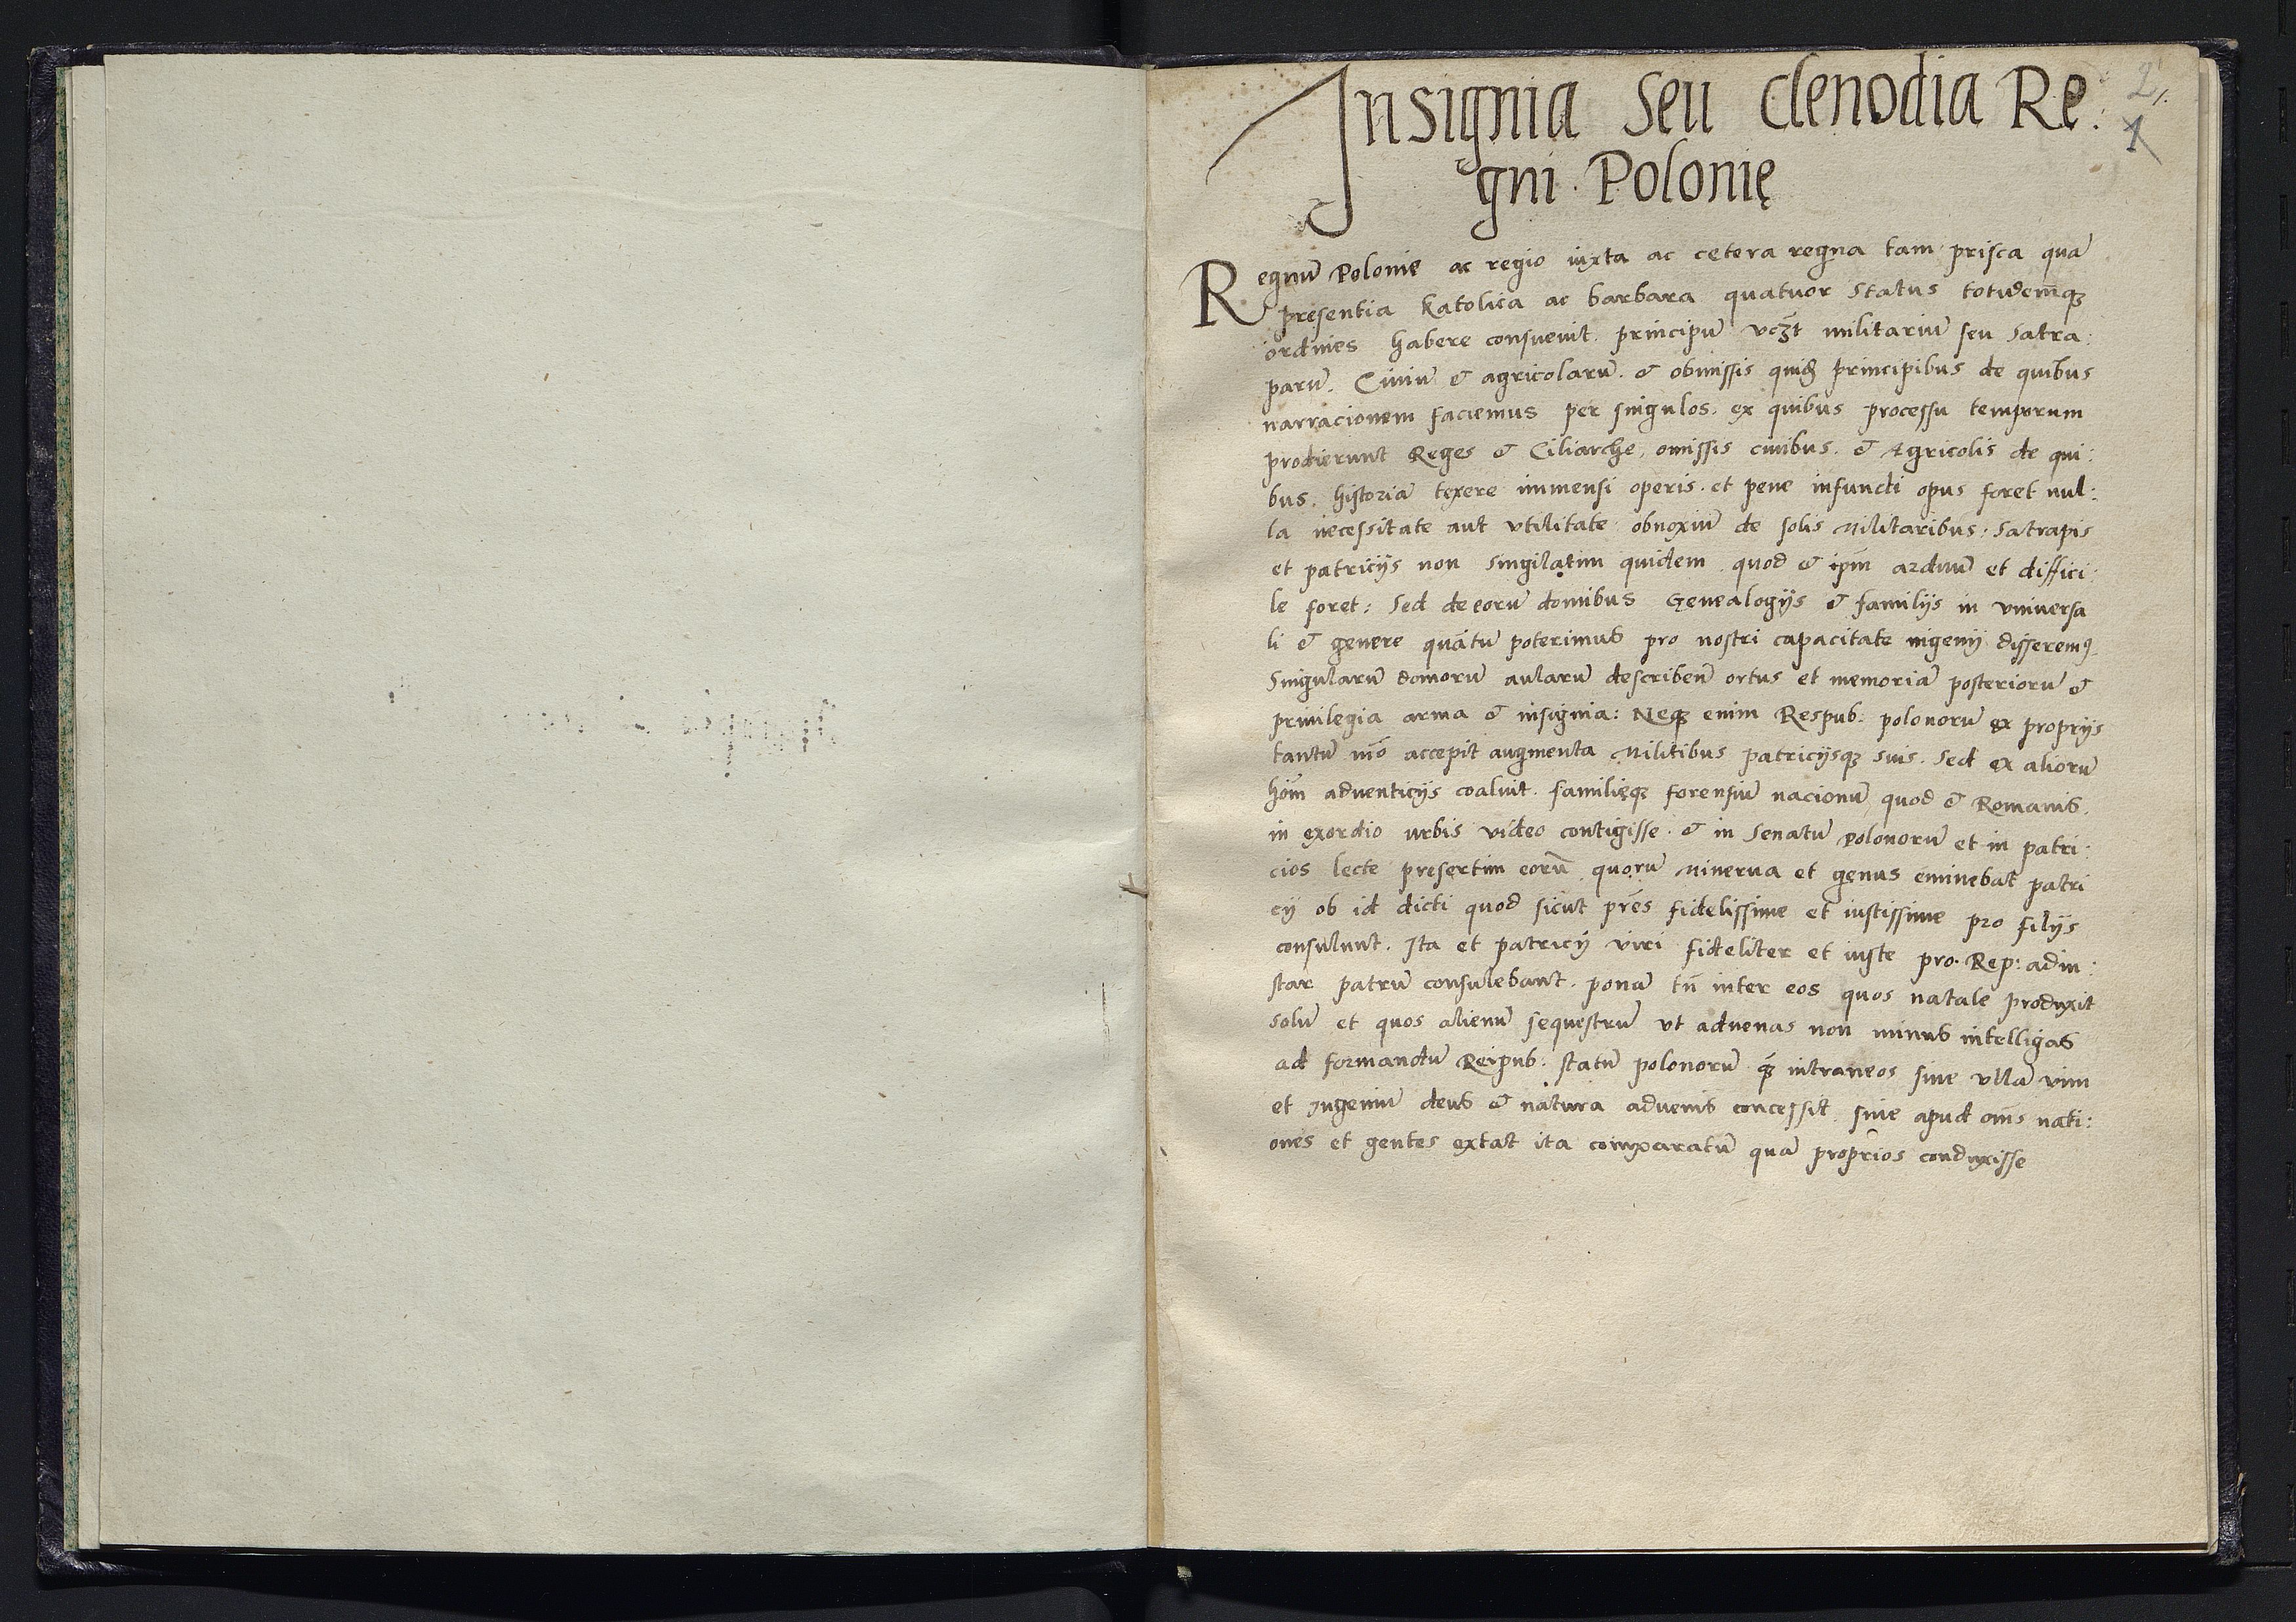 Insignia seu clenodia Re:
gni Polonię
2
1
Regnū Polonię ac regio iuxta ac cętera regna tam prisca quā
pręsentia katolica ac barbara quatuor status totidemq3
ordines habere consuevit. principū vcꝫt militariū seu Satra:
parū. Civiū & agricolarū. & obmissis quiđ principibus de quibus
narracionem faciemus per singulos. ex quibus processu temporum
prodierunt Reges & Ciliarche, omissis civibus. & Agricolis de qui:
bus. historiā texere immensi operis. et pene infundi opus foret nul:
la necessitate aut vtilitate obnoxiū de solis Militaribus: Satrapis
et patricijs non singilatim quidem quod & ipm̄ arduū et diffici:
le foret: Sed de eorū domibus Genealogijs & familijs in vniversa
li & genere quātū poterimus pro nostri capacitate ingenij disseremꝰ.
Singularū domorū aularū describem̄ ortus et memoriā posteriorū &
privilegia arma & insignia: Neq3 enim Respub: polonorū ex proprijs
tantū mō accepit augmenta Militibus patricijsq3 suis. Sed ex aliorū
hōm adventicijs coaluit. familięq3 forensiū nacionū quod & Romanis.
in exordio urbis video contigisse. & in Senatū Polonorū et in patri:
cios lecte pręsertim eorū quorū Minerua et genus eminebat patri
cij ob id dicti quod sicut prēs fidelissime et iustissime pro filijs
consulunt. Ita et patricij viri fideliter et iuste pro. Rep: adin:
star patrū consulebant. ponā tn̄ inter eos quos natale produxit
solū et quos alienū sequestrū vt advenas non minus intelligas
ad formandū Reipub: statū polonorū q3 intraneos sive vllā vim
et Ingeniū deus & natura advenis concessit sive apud om̄s nati:
ones et gentes extat ita comparatū quā proprios conduxisse